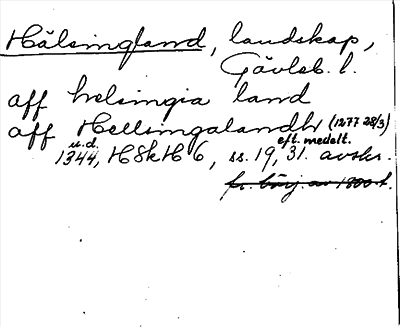 Hälsingland, landskap,
Gävleb. l.
aff helsingia land
aff Hellsingalandh (1277 28/3)
u.d. eft. medelt.
1344, HSkH 6, ss. 19, 31. avskr.
fr. börj av 1800-t.